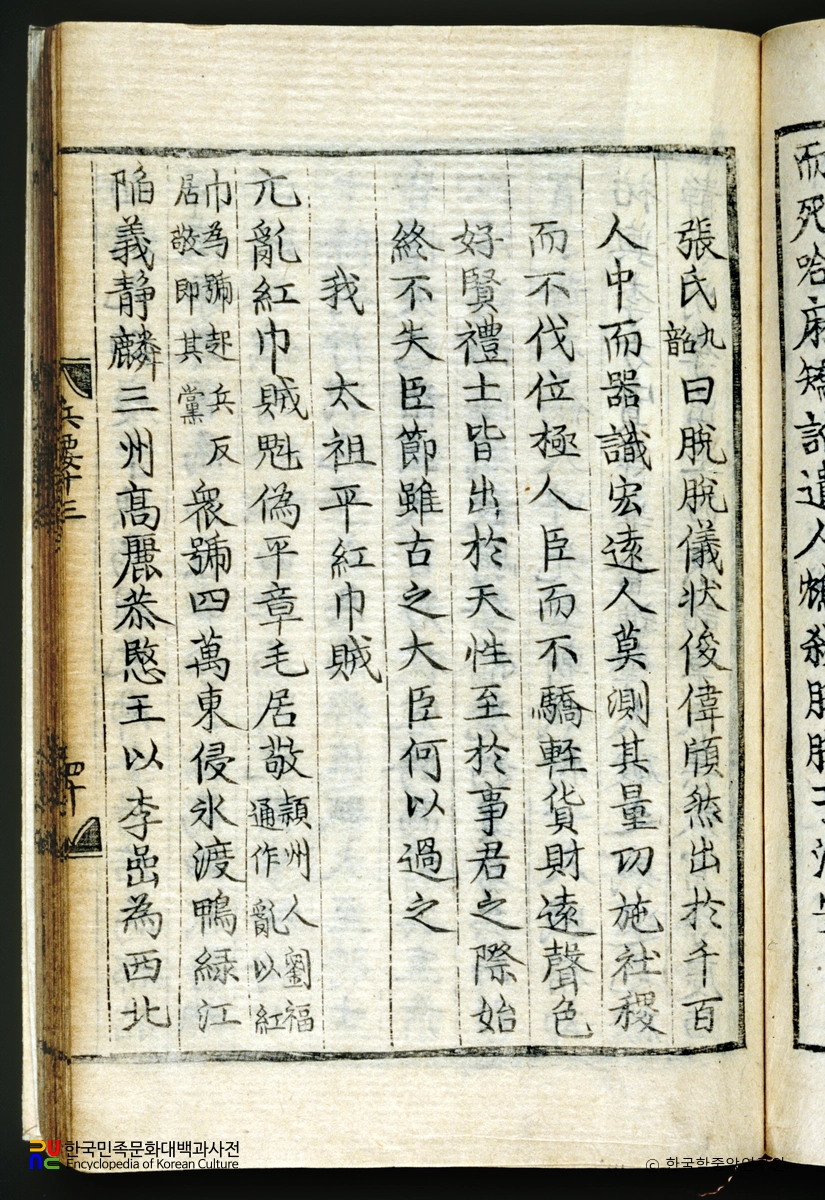 而死哈麻矯詔遣人
張氏九韶曰脫脫儀狀俊偉頎然出於千百
人中而器識宏遠人莫測其量功施社稷
而不伐位極人臣而不驕輕貨財遠聲色
好賢禮士皆出於天性至於事君之際始
終不失臣節雖古之大臣何以過之
我太祖平紅巾賊
亢亂紅巾賊魁偽平章毛居敬潁州人劉福通作亂以紅
巾為號起兵反居敬即其黨衆號四萬東侵氷渡鴨緑江
陷義静麟三州高麗恭愍王以李嵒為西北
兵要十三
四十
한국민족문화대백과사전
Encyclopedia of Korean Culture